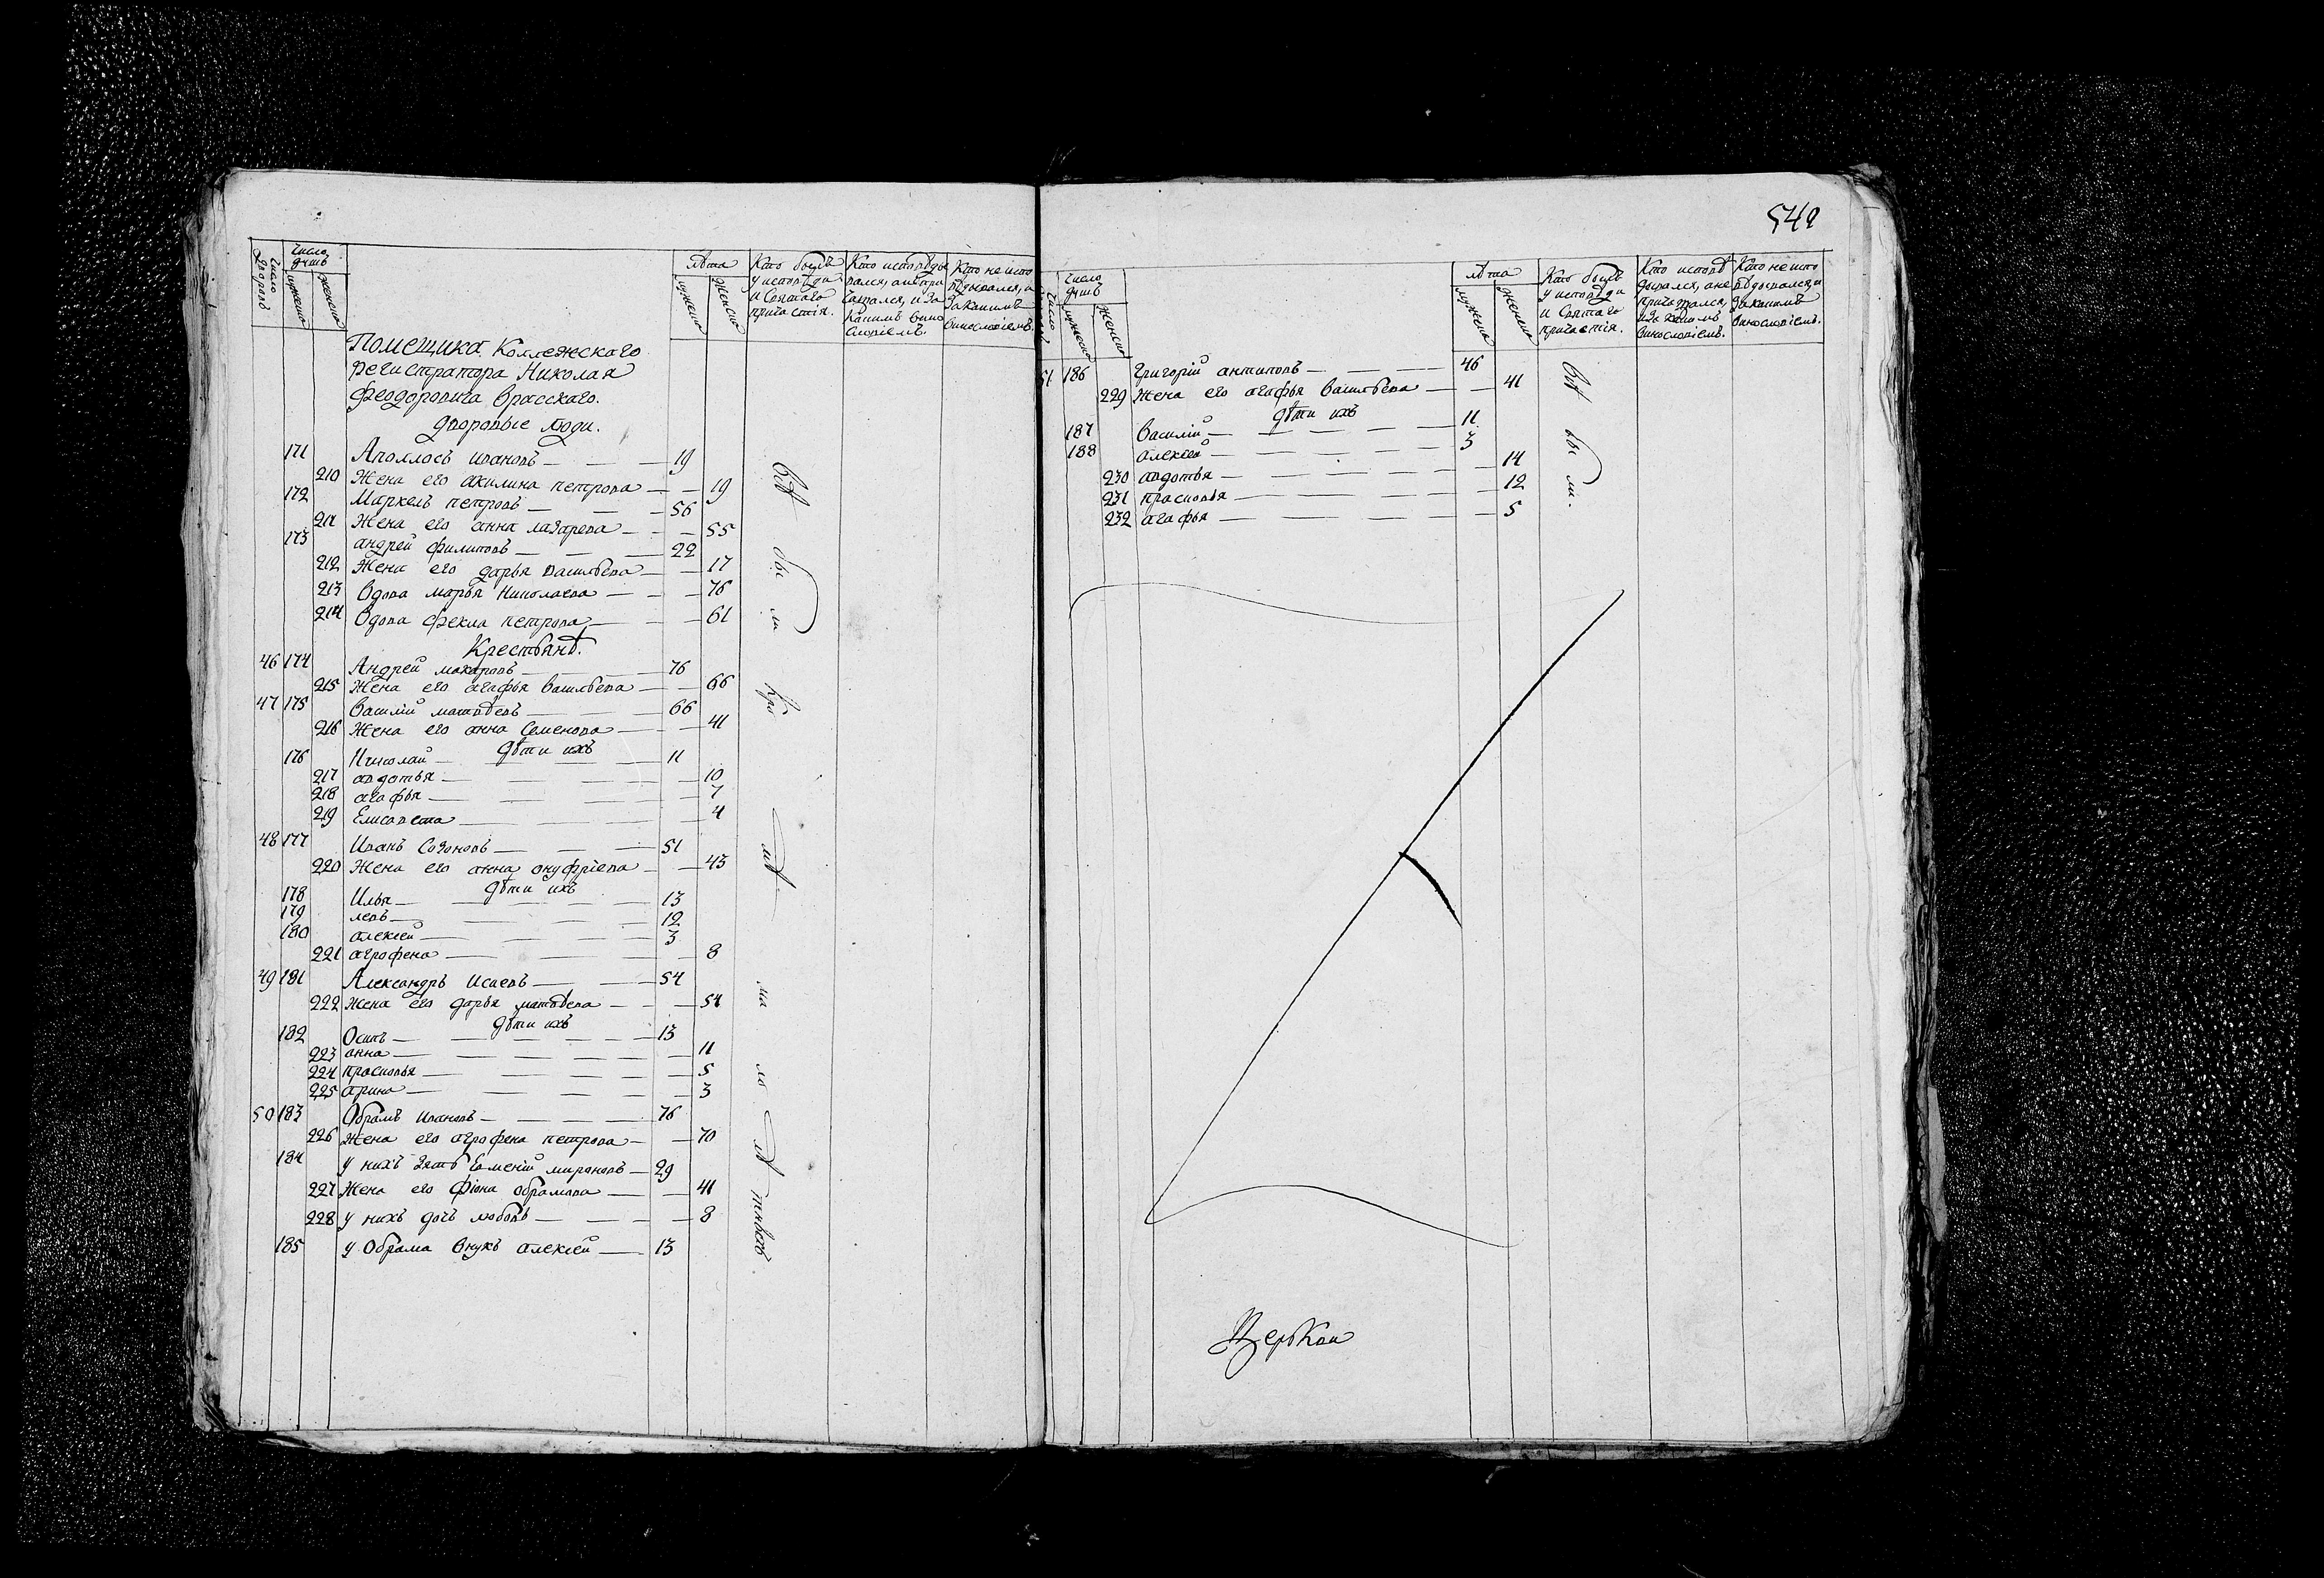 Число дворовъ
Число душъ
мужеска
женска
лѣта
мужеска
женска
Кто былъ у исповѣди и святаго причастія.
Кто исповѣдывался, а не причащался, и за какимъ винословіемъ.
Кто не исповѣдывался, и за какимъ винословіемъ.
Помещика Коллежскаго
регистратора Николая
Феодоровича Врасскаго.
дворовые люди.
171 Аполлосъ ивановъ 19
210 Жена его акилина петрова 19
172 Маркелъ петровъ 56
211 Жена его анна лазарева 55
173 андрей филиповъ 22
212 Жена его дарья васильева 17
213 Вдова марья Николаева 76
214 Вдова фекла петрова 61
Крестьянѣ.
46 174 Андрей макаровъ 76
215 Жена его агафья васильева 66
47 175 Василий матвѣевъ 66
216 Жена его анна Семенова 41
дѣти ихъ
176 Николай 11
217 авдотья 10
218 агафья 7
219 Елисавета 4
48 177 Иванъ Созоновъ 51
220 Жена его анна онуфріева 43
дѣти ихъ
178 Илья 13
179 левъ 12
180 алексей 3
221 агрофена 8
49 181 Александръ Исаевъ 54
222 Жена его дарья матвѣева 54
дѣти ихъ
182 Осипъ 13
223 анна 11
224 прасковья 5
225 арина 3
50 183 Обрамъ ивановъ 76
226 Жена его агрофена петрова 70
184 у нихъ зять Евменій мироновъ 29
227 Жена его Фіона обрамова 41
228 у нихъ дочь любовь 8
185 у Обрама внукъ алексей 13
всѣ были кромѣ малолѣтныхъ
542
Число душъ
мужеска
женска
лѣта
мужеска
женска
Кто былъ у исповѣди и святаго причастія.
Кто исповѣдывался, а не причащался, и за какимъ винословіемъ.
Кто не исповѣдывался, и за какимъ винословіемъ.
51 186 Григорій антиповъ 46
229 Жена его агафья васильева 41
дѣти ихъ
187 Василій 11
188 алексей 3
230 авдотья 14
231 прасковья 12
232 агафья 5
всѣ были.
Церкви